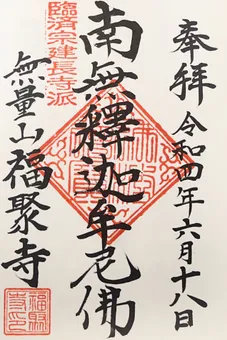 奉拝
令和四年六月十八日
臨済宗建長寺派
南無釋迦牟尼佛
無量山
福聚寺
福聚
寺印